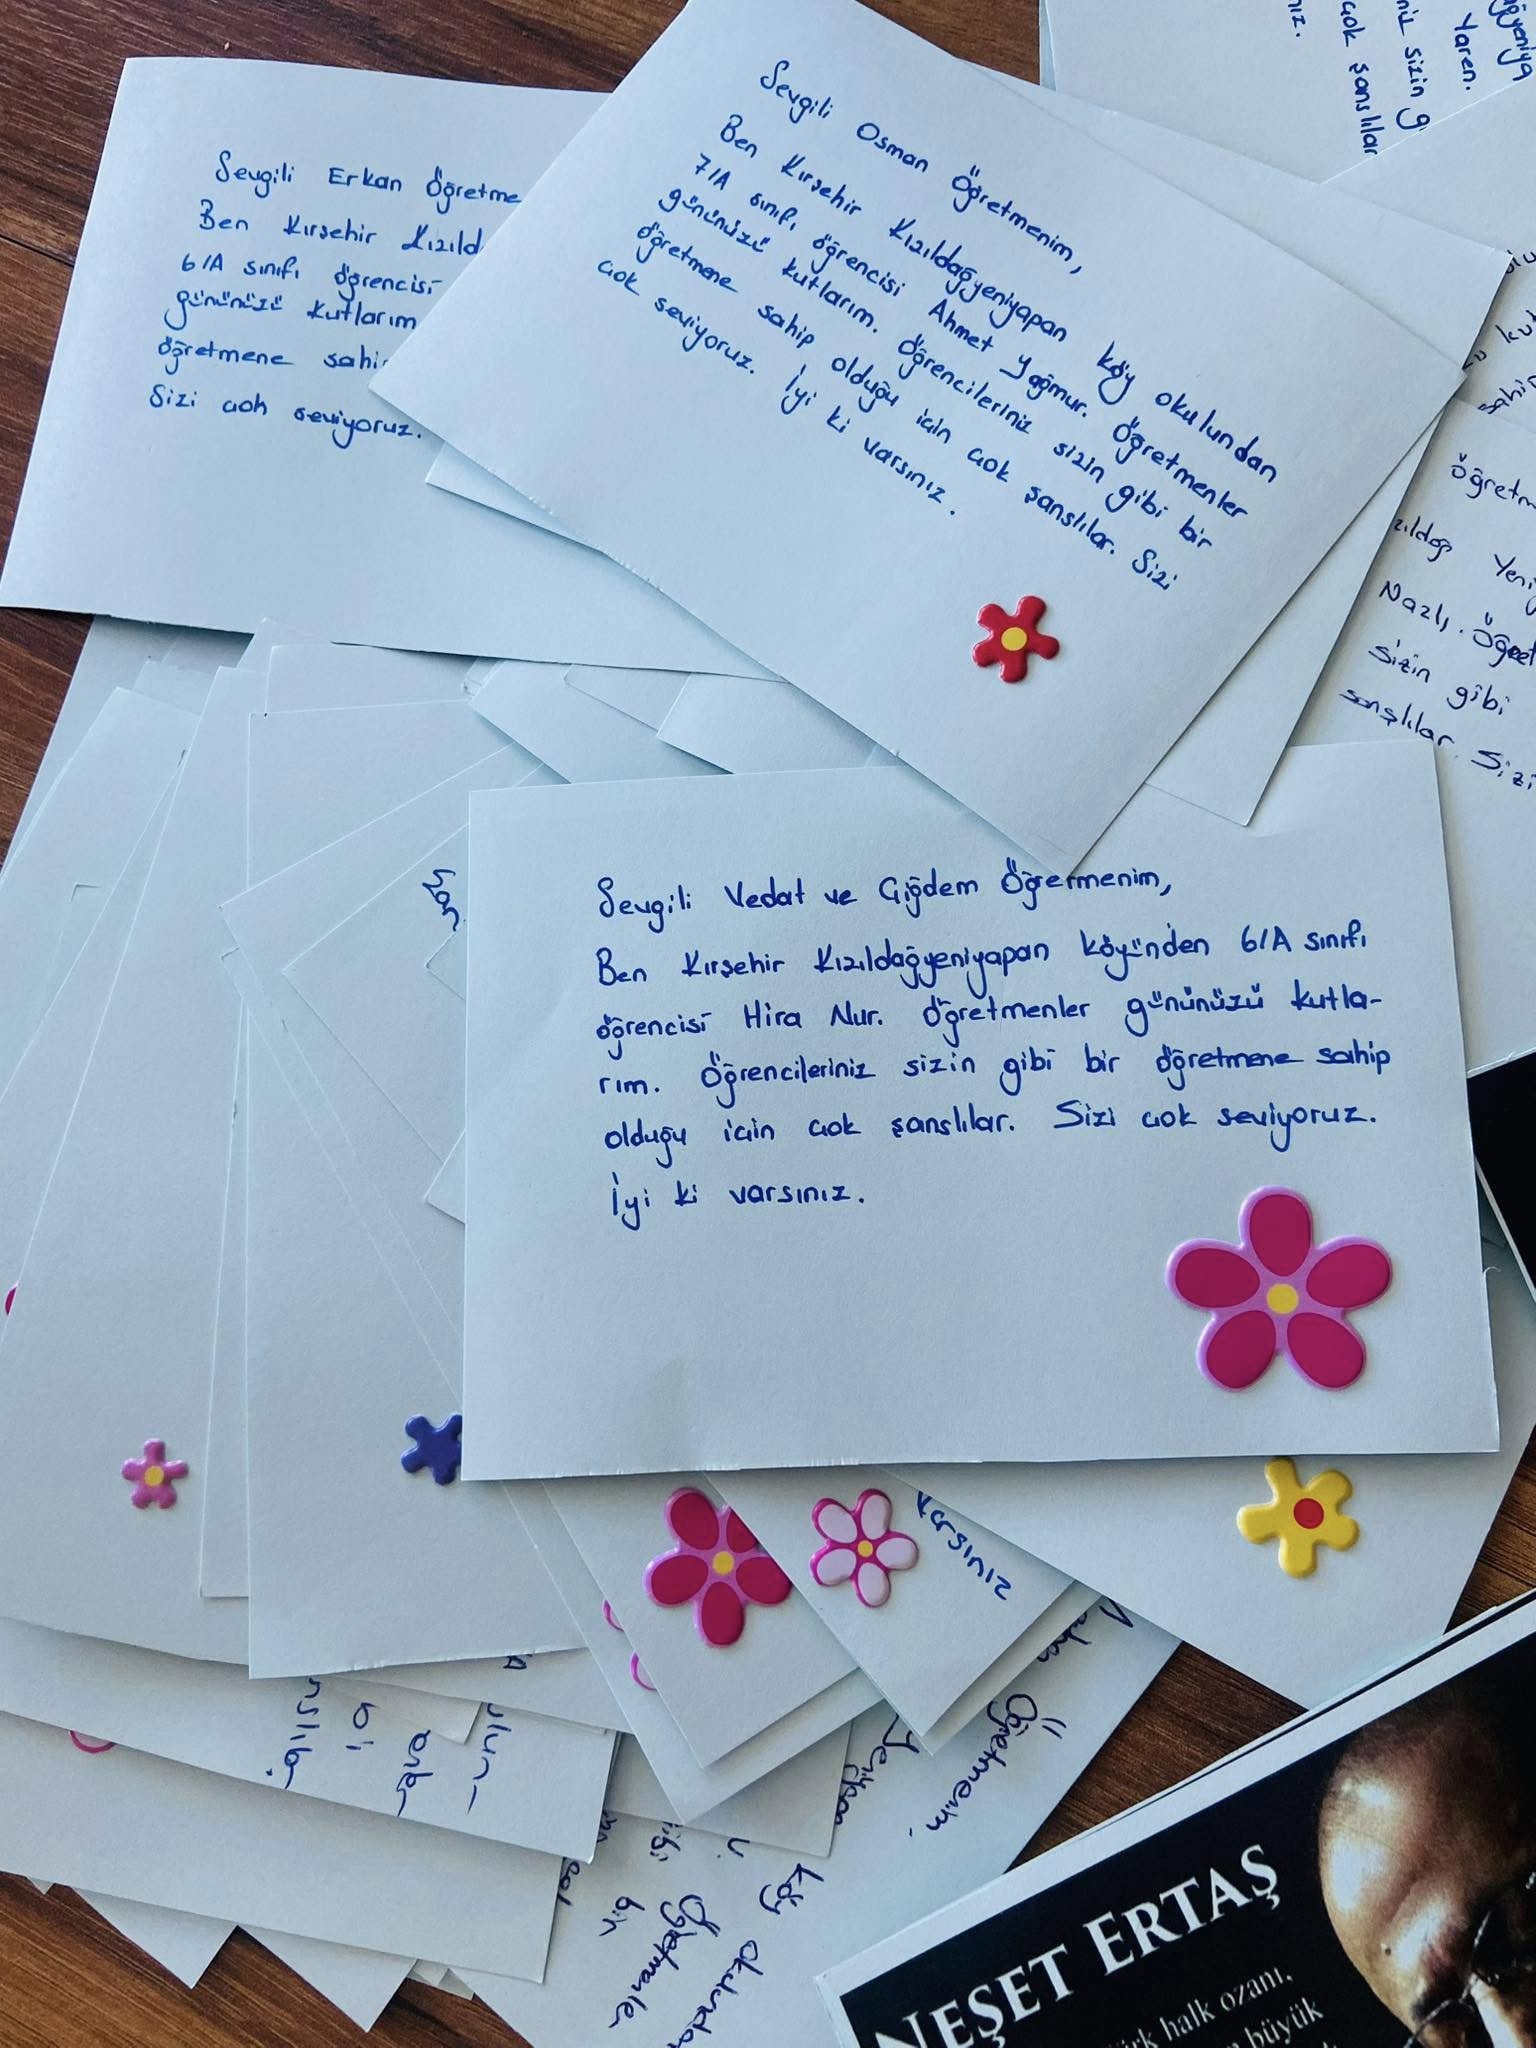 Sevgili Erkan Öğretme
Ben Kırşehir Kızıld
6/A sınıfı öğrencisi
gününüzü kutlarım
öğretmene sahi
Sizi çok seviyoruz.
Sevgili Osman Öğretmenim,
Ben Kırşehir Kızıldağyeniyapan köy okulundan
7/A sınıfı öğrencisi Ahmet Yağmur. Öğretmenler
gününüzü kutlarım. Öğrencileriniz sizin gibi bir
öğretmene sahip olduğu için çok şanslılar. Sizi
çok seviyoruz. İyi ki varsınız.
ğyeniya
Yaren.
niz sizin g
çok şanslılar
nız.
öğretm
zıldağ Yeni
Nazlı. Öğret
sizin gibi
şanslılar. Sizi
Sevgili Vedat ve Çiğdem Öğretmenim,
Ben Kırşehir Kızıldağyeniyapan köyünden 6/A sınıfı
öğrencisi Hira Nur. Öğretmenler gününüzü kutla-
rım. Öğrencileriniz sizin gibi bir öğretmene sahip
olduğu için çok şanslılar. Sizi çok seviyoruz.
İyi ki varsınız.
varsınız
Öğretmenim.
köy okulunda
Öğretmenler
bir
NEŞET ERTAŞ
ürk halk ozanı.
n büyük